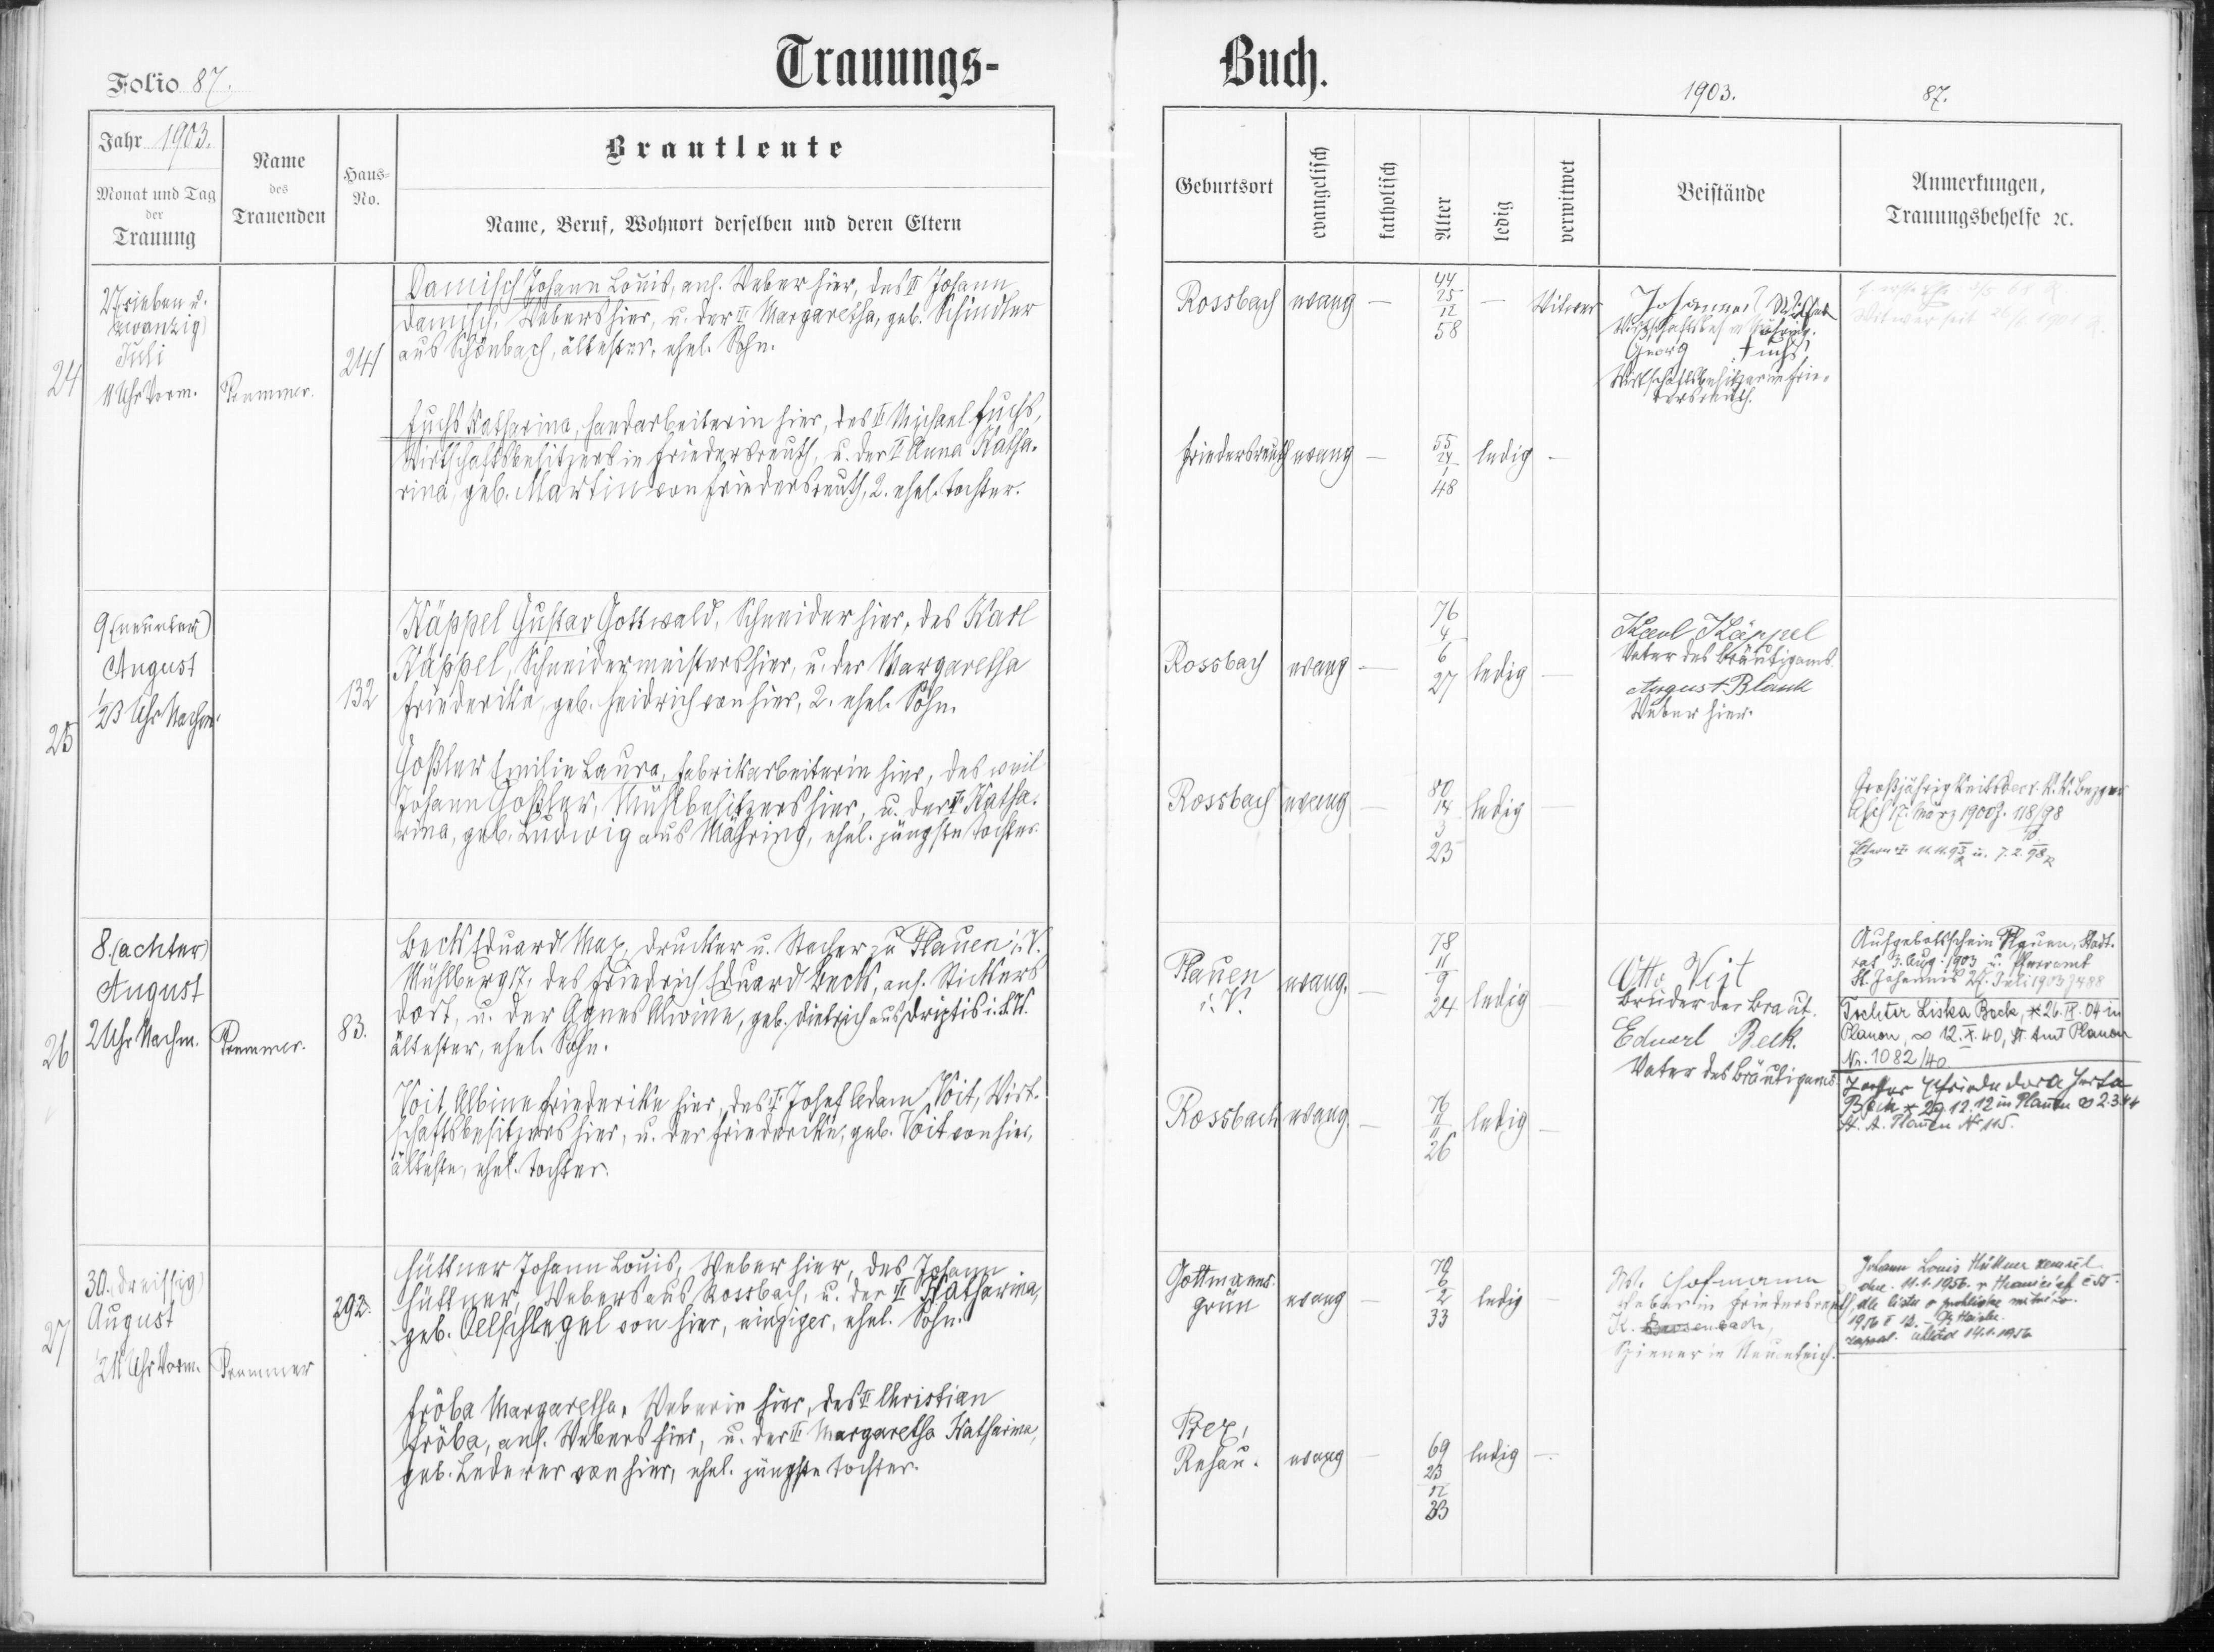 Trauungs-
Buch.
Folio 87.
1903.
87.
Jahr 1903.
Monat und Tag
der
Trauung
Name
des
Trauenden
Haus-
No.
Brautleute
Name, Beruf, Wohnort derselben und deren Eltern
Geburtsort
evangelisch
katholisch
Alter
ledig
verwitwet
Beistände
Anmerkungen,
Trauungsbehelfe ꝛc.
24
27. sieben u.
zwanzig)
Juli
11 Uhr Vorm.
241
Damisch Johann Louis, ans. Weber hier, des ✝ Johann
Damisch, Webers hier, u. der ✝ Margaretha, geb. Schindler
aus Schönbach, ältester, ehel. Sohn.
Fuchs Katharina, Handarbeiterin hier, des ✝ Michael Fuchs,
Wirtschaftsbesitzers in Friedersreuth, u. der ✝ Anna Katha-
rina, geb. Martin von Friedersreuth, 2. ehel. Tochter.
Rossbach evang — 44 25 12 58 — Witwer
Johannes
Georg Fuchs,
Wirtschaftsbesitzer in Frie-
dersreuth.
Witwer seit
Friedersreuth evang — 55 24 1 48 ledig —
25
9. (neunter)
August
1/2 3 Uhr Nachm.
132
Käppel Gustav Gottwald, Schneider hier, des Karl
Käppel, Schneidermeisters hier, u. der Margaretha
Friederike, geb. Heidrich von hier, 2. ehel. Sohn.
Goßler Emilie Laura, Fabriksarbeiterin hier, des weil
Johann Goßler, Mühlbesitzers hier, u. der ✝ Katha-
rina, geb. Ludwig aus Mähring, ehel. jüngste Tochter.
Rossbach evang — 76 4 6 27 ledig —
Karl Käppel
Vater des Bräutigams.
August Blank
Weber hier.
Rossbach evang — 80 14 3 23 ledig —
Asch 17. März 1900 Z. 118/98
26
8. (achter)
August
2 Uhr Nachm.
83.
Beck Eduard Max, Drucker u. Stecher zu Plauen i. V.
Mühlberg 17, des Friedrich Eduard Beck, ans. Stickers
dort, u. der Agnes Alwine, geb. Dietrich aus
ältester, ehel. Sohn.
Voit Albine Friederike hier, des ✝ Josef Adam Voit, Wirt-
schaftsbesitzers hier, u. der Friederike, geb. Voit von hier,
älteste, ehel. Tochter.
Plauen
i. V.
evang. — 78 11 9 24 ledig —
Otto Voit
Bruder der Braut.
Eduard Beck.
Vater des Bräutigams
Aufgebotsschein Plauen, Stadt-
rat 3. Aug. 1903 u. Pfarramt
St. Johannis 27. Juli 1903
Tochter Liska Beck, * 26. IX. 04 in
Plauen, ∞ 12. X. 40, St. Amt Plauen
Nr. 1082/40
Tochter Elfriede Dora Herta
Beck * 29.12.12 in Plauen ∞ 2.3.44
St. A. Plauen Nr 115.
Rossbach evang. — 76 11 11 26 ledig —
27
30. (dreissig)
August
1/2 11 Uhr Vorm.
292.
Hüttner Johann Louis, Weber hier, des Johann
Hüttner, Webers aus Rossbach, u. der ✝ Katharina,
geb. Oelschlegel von hier, einziger, ehel. Sohn.
Fröba Margaretha, Weberin hier, des ✝ Christian
Fröba, ans. Webers hier, u. der ✝ Margaretha Katharina,
geb. Lederer von hier, ehel. jüngste Tochter.
Gottmanns-
grün
evang — 70 6 2 33 ledig —
W. Hofmann
Weber in Friedersreuth
Johann Louis Hüttner zemřel
dne 11.1.1956
14.1.1956
Prex,
Rehau.
evang — 69 23 12 33 ledig —